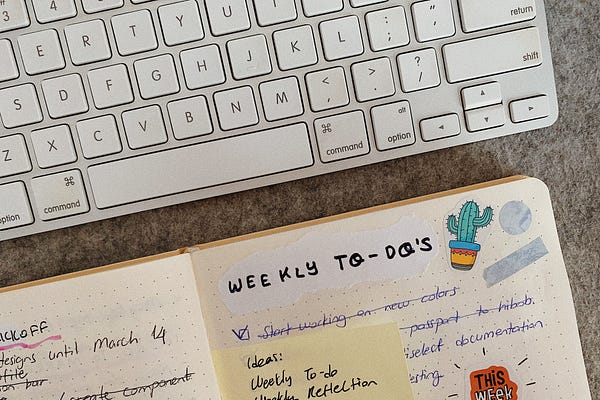 3 4
E R T Y U I O P { [ } ] return
S D F G H J K L : ; " ' shift
Z X C V B N M < , > . ? /
option ⌘ command ⌘ command alt option ◀ ▲ ▼ ▶
WEEKLY TO-DO'S
Start working on new colors
passport to hibob.
iselect documentation
esting
Ideas:
Weekly To-do
Weekly Reflection
THIS
WEEK
ICKOFF
designs until March 14
ofile
ion bar
create component